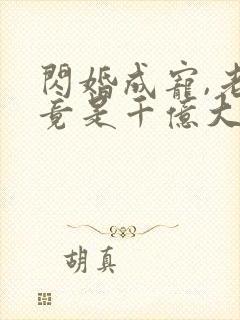 閃婚成寵,老
竟是千億大
胡真